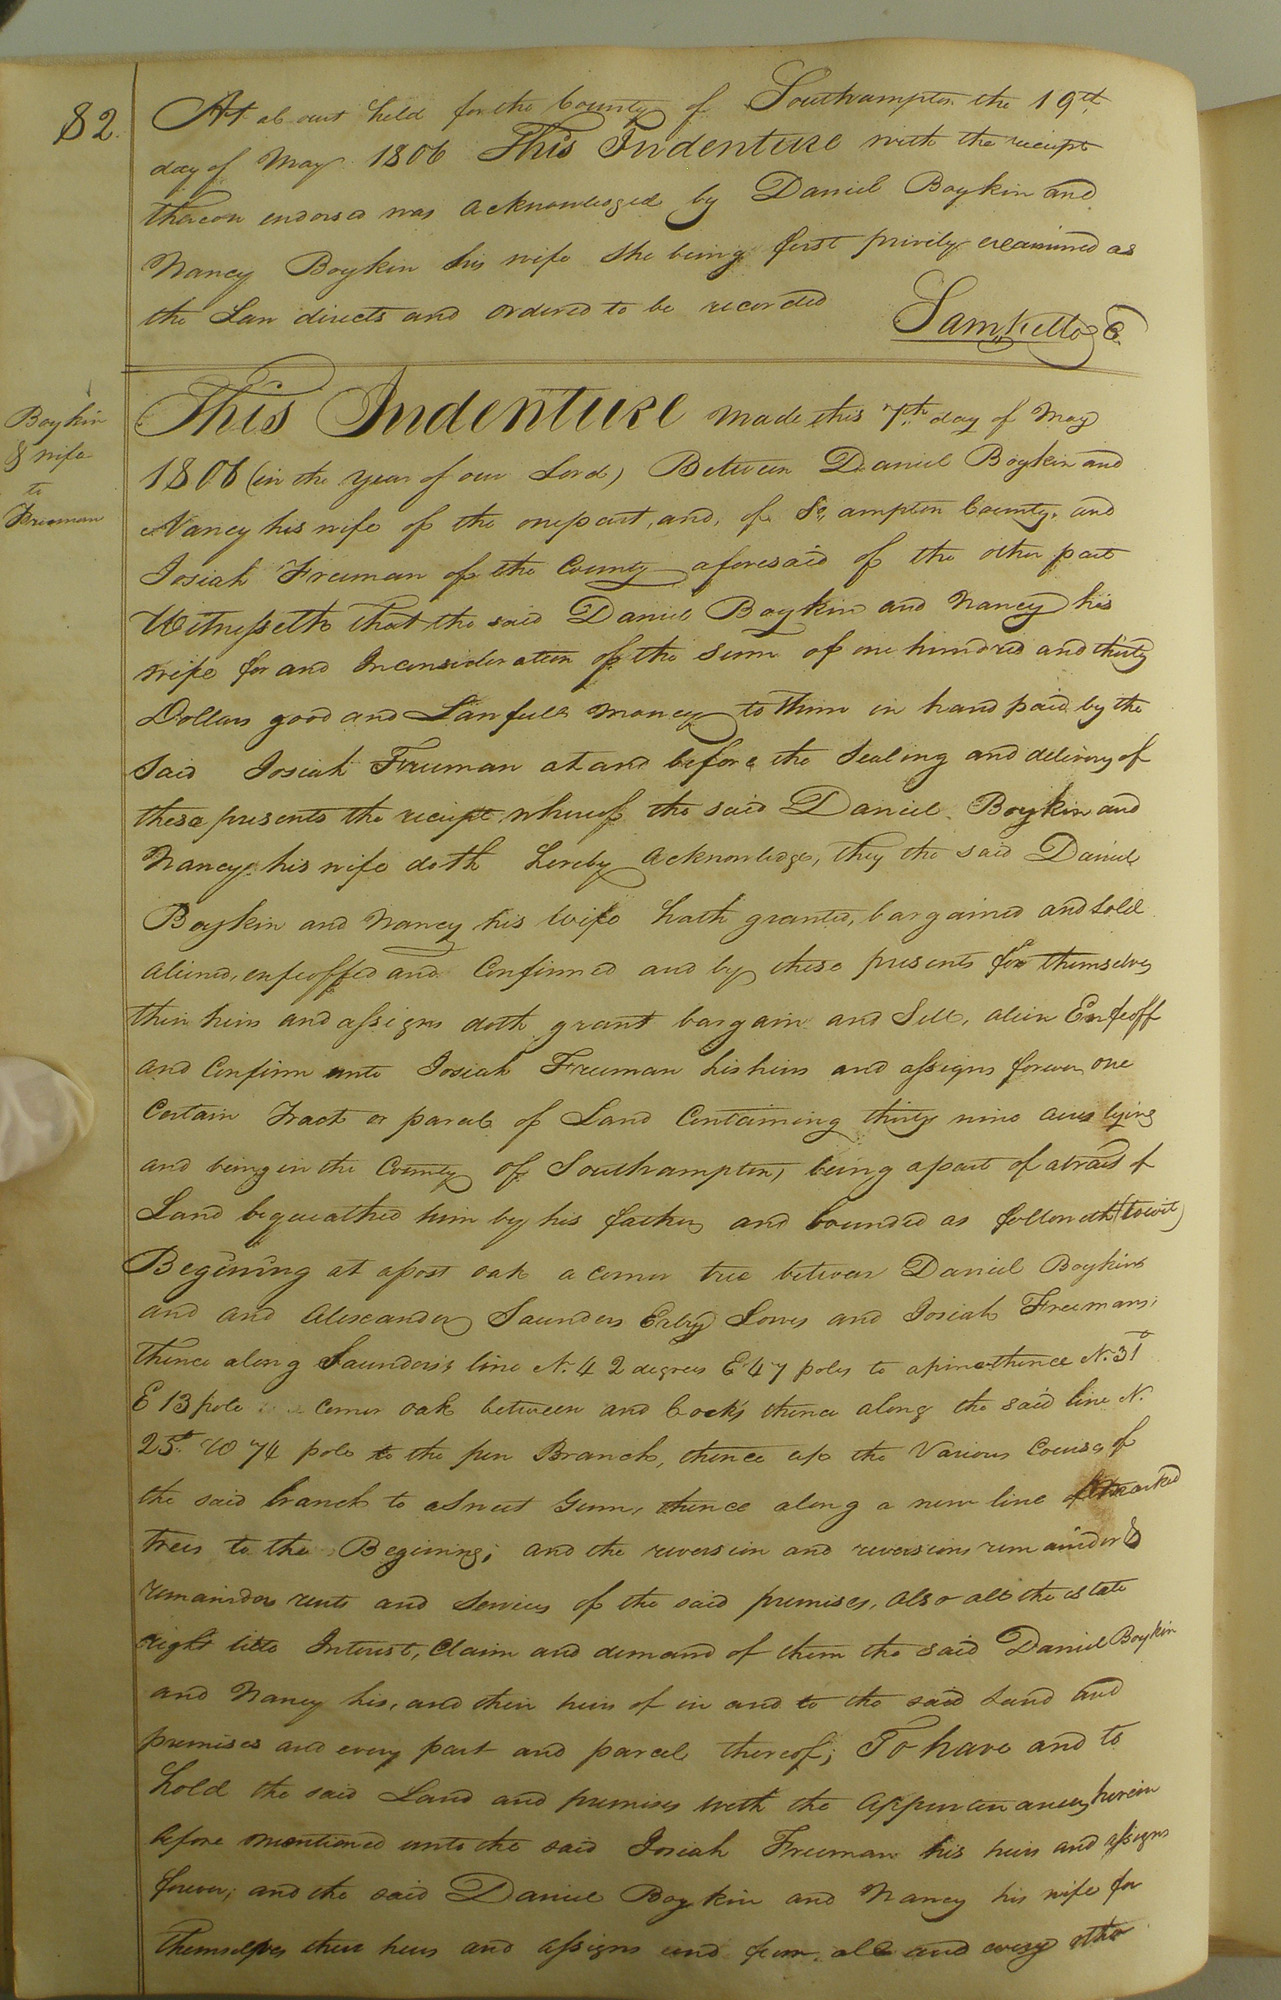 82.
At a Court held for the County of Southampton the 19th
day of May 1806 This Indenture with the receipt
thereon endorsed was acknowledged by Daniel Boykin and
Nancy Boykin his wife she being first privily examined as
the Law directs and ordered to be recorded
Sam Kello C.
Boykin
& wife
to
Freeman
This Indenture made this 7th day of May
1806 (in the year of our Lord) Between Daniel Boykin and
Nancy his wife of the one part, and, of So,, ampton County, and
Josiah Freeman of the County aforesaid of the other part
Witnesseth that the said Daniel Boykin and Nancy his
wife for and Inconsideration of the sum of one hundred and thirty
Dollars good and Lawfull money to them in hand paid by the
said Josiah Freeman at and before the Sealing and delivery of
these presents the receipt whereof the said Daniel Boykin and
Nancy his wife doth hereby acknowledge, they the said Daniel
Boykin and Nancy his wife hath granted, bargained and sold
aliened, enfeoffed and Confirmed and by these presents for themselves
their heirs and assigns doth grant bargain and Sell, alien Enfeoff
and Confirm unto Josiah Freeman his heirs and assigns forever one
Certain Tract or parcel of Land Containing thirty nine acres lying
and being in the County of Southampton, being a part of a tract of
Land bequeathed him by his father and bounded as followeth (towit)
Begining at a post oak a corner tree between Daniel Boykins
and and Alexander Saunders Exby Lows and Josiah Freemans;
thence along Saunders's line N. 42 degrees E 47 poles to a pine thence N. 31°
E 13 pole corner oak between and Cock's thence along the said line N.
25° W 74 pole to the pen Branch, thence up the Various Courses of
the said branch to a Sweet Gum, thence along a new line of marked
trees to the Begining; and the reversion and reversions remainder &
remainders rents and Services of the said premises, also all the estate
right title Interest, Claim and demand of them the said Daniel Boykin
and Nancy his, and their heirs of in and to the said Land and
premises and every part and parcel thereof; To have and to
hold the said Land and premises with the appurtenances, herein
before mentioned unto the said Josiah Freeman his heirs and assigns
forever; and the said Daniel Boykin and Nancy his wife for
themselves their heirs and assigns and from all and every other